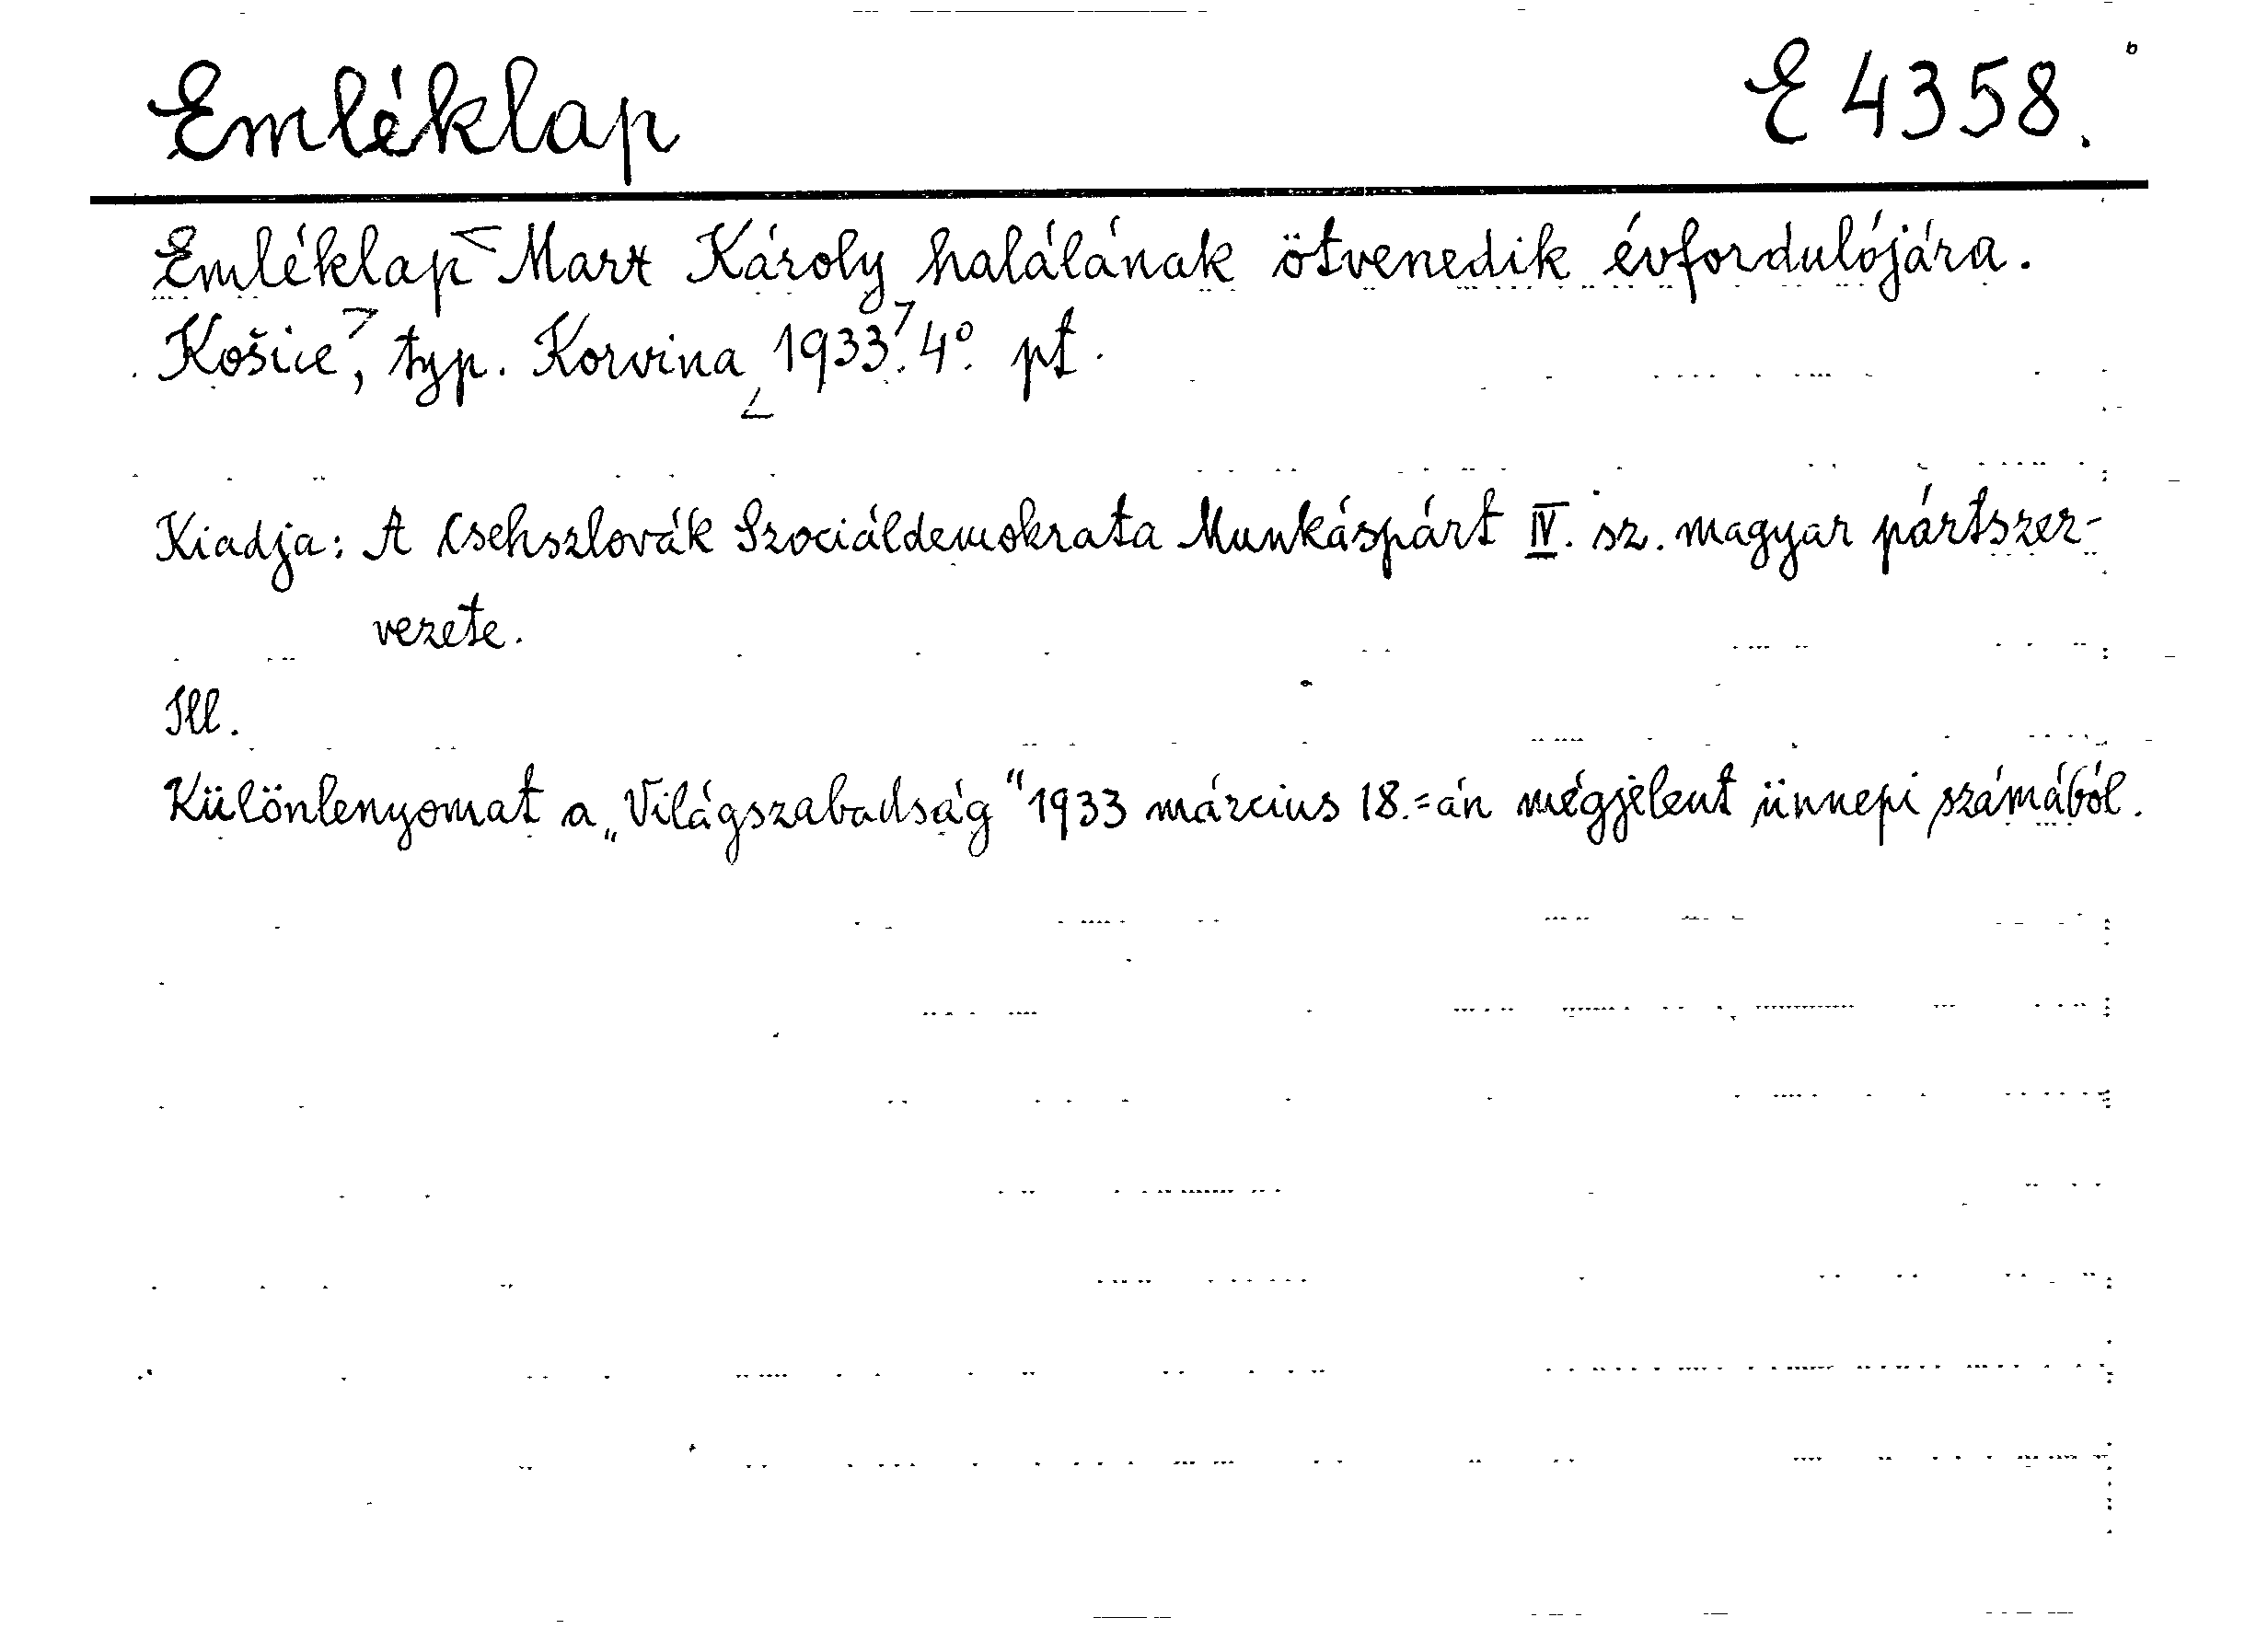 Emléklap
E 4358.
Emléklap Marx Károly halálának ötvenedik évfordulójára.
Košice, typ. Korvina 1933. 4° pt.
Kiadja: A Csehszlovák Szociáldemokrata Munkáspárt IV. sz. magyar pártszer-
vezete.
Ill.
Különlenyomat a „Világszabadság" 1933 március 18.=án megjelent ünnepi számából.